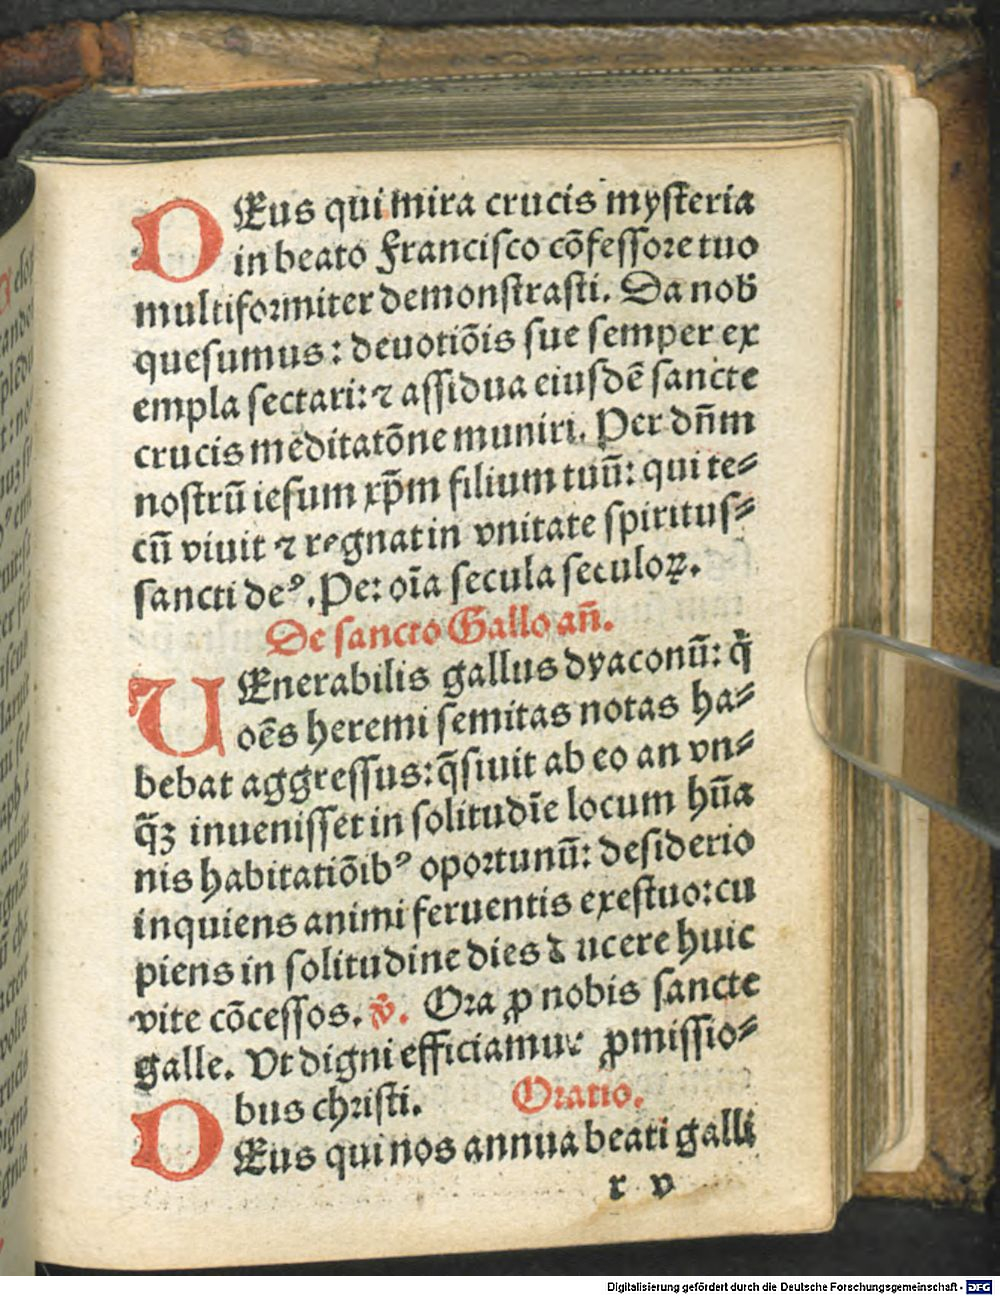 DEus qui mira crucis mysteria
in beato Francisco cõfessore tuo
multiformiter demonstrasti. Da nob̄
quesumus: deuotiõis sue semper ex
empla sectari: ⁊ assidua eiusdē sancte
crucis meditatõne muniri. Per dn̄m
nostrū iesum xp̄m filium tuū: qui te⸗
cū viuit ⁊ regnat in vnitate spiritus⸗
sancti deꝰ. Per oīa secula seculoꝝ.
De sancto Gallo an̄.
UEnerabilis gallus dyaconū: q̄
oēs heremi semitas notas ha⸗
bebat aggressus: q̄siuit ab eo an vn⸗
q̄ꝫ inuenisset in solitudīe locum hūa
nis habitatiõibꝰ oportunū: desiderio
inquiens animi feruentis exestuo: cu
piens in solitudine dies ducere huic
vite cõcessos. v̄. Ora ꝓ nobis sancte
galle. Vt digni efficiamur ꝓmissio⸗
bus christi. Oratio.
DEus qui nos annua beati galli
r v
Digitalisierung gefördert durch die Deutsche Forschungsgemeinschaft - DFG